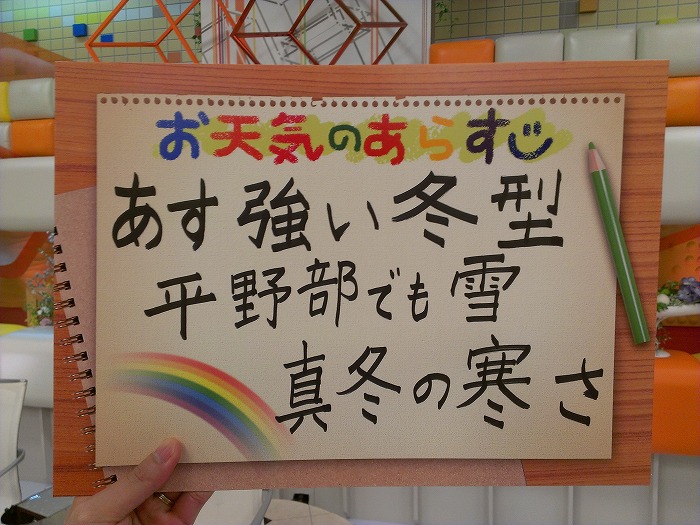 お天気のあらすじ
あす強い冬型
平野部でも雪
真冬の寒さ